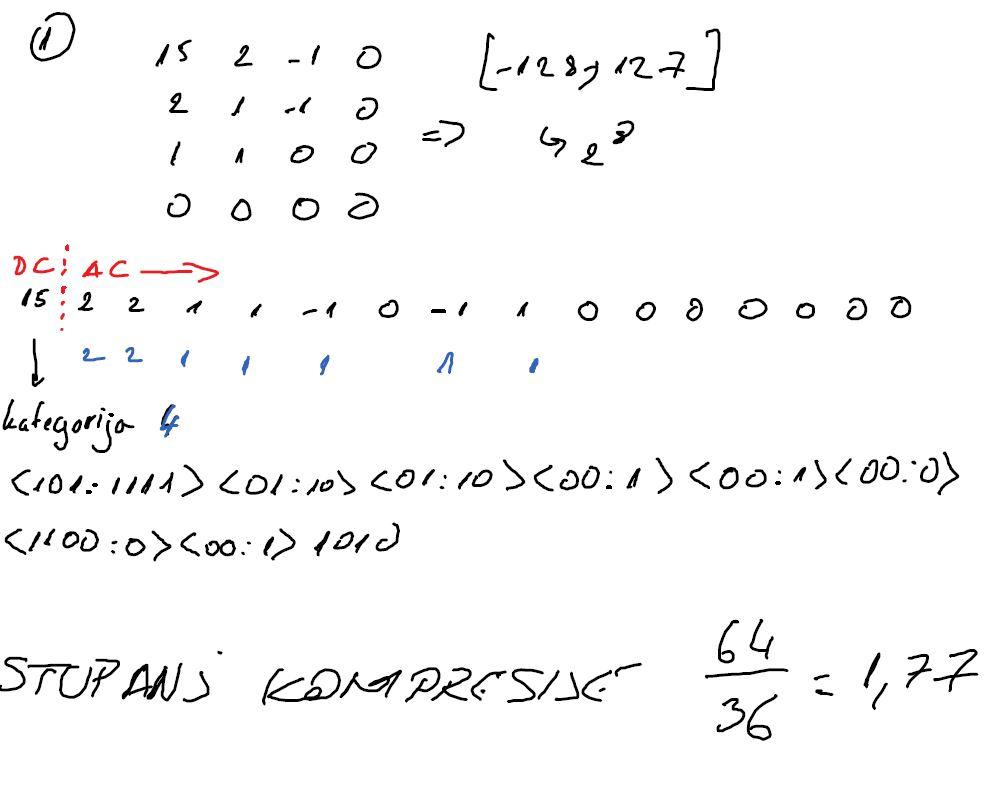 1
15 2 -1 0 [-128, 127]
2 1 -1 0
1 1 0 0 => ↳ 2⁸
0 0 0 0
DC AC →
15 2 2 1 1 -1 0 -1 1 0 0 0 0 0 0 0
2 2 1 1 1 1 1
↓
kategorija 4
<101:1111> <01:10> <01:10> <00:1> <00:1> <00:0>
<1100:0> <00:1> 1010
STUPANJ KOMPRESIJE 64/36 = 1,77